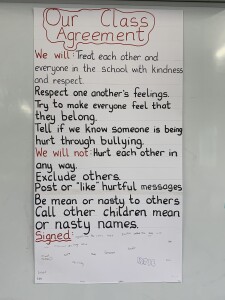 Our Class
Agreement
We will: Treat each other and
everyone in the school with kindness
and respect.
Respect one another's feelings.
Try to make everyone feel that
they belong.
Tell if we know someone is being
hurt through bullying.
We will not Hurt each other in
any way.
Exclude others.
Post or "like" hurtful messages
Be mean or nasty to others
Call other children mean
or nasty names.
Signed: